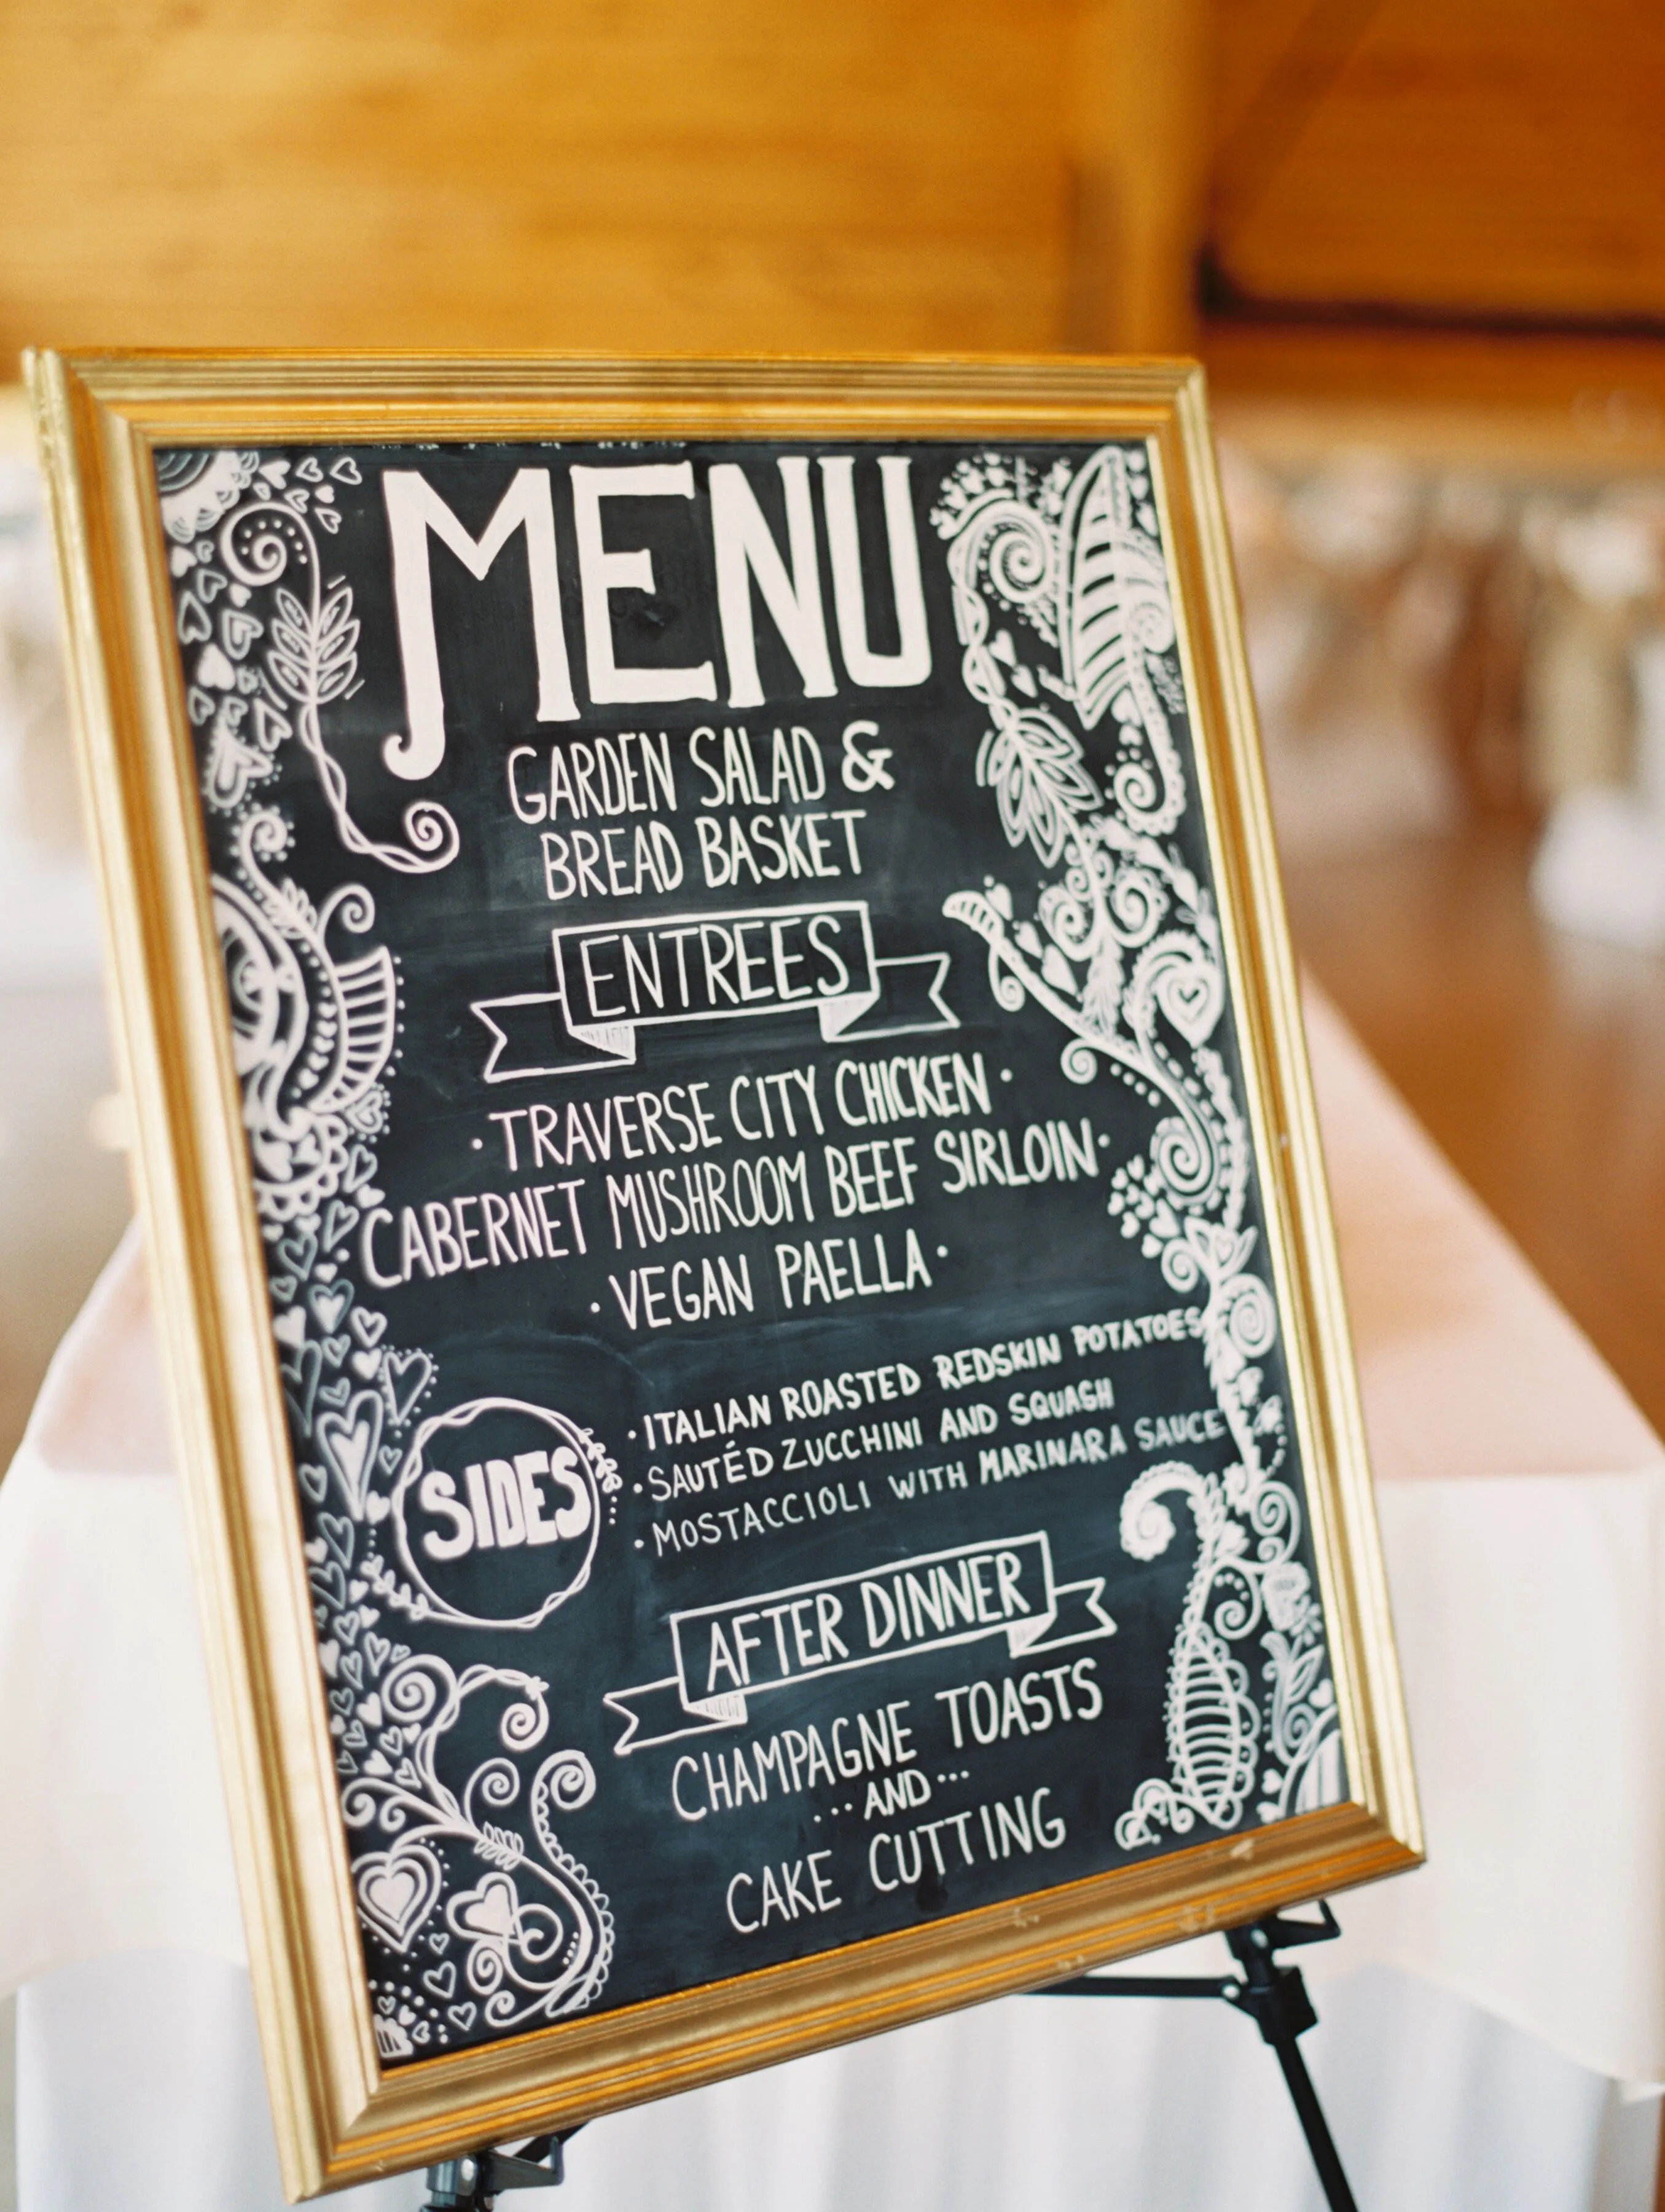 MENU
GARDEN SALAD &
BREAD BASKET
ENTREES
· TRAVERSE CITY CHICKEN ·
CABERNET MUSHROOM BEEF SIRLOIN ·
· VEGAN PAELLA ·
SIDES
· ITALIAN ROASTED REDSKIN POTATOES
· SAUTÉD ZUCCHINI AND SQUASH
· MOSTACCIOLI WITH MARINARA SAUCE
AFTER DINNER
CHAMPAGNE TOASTS
... AND ...
CAKE CUTTING